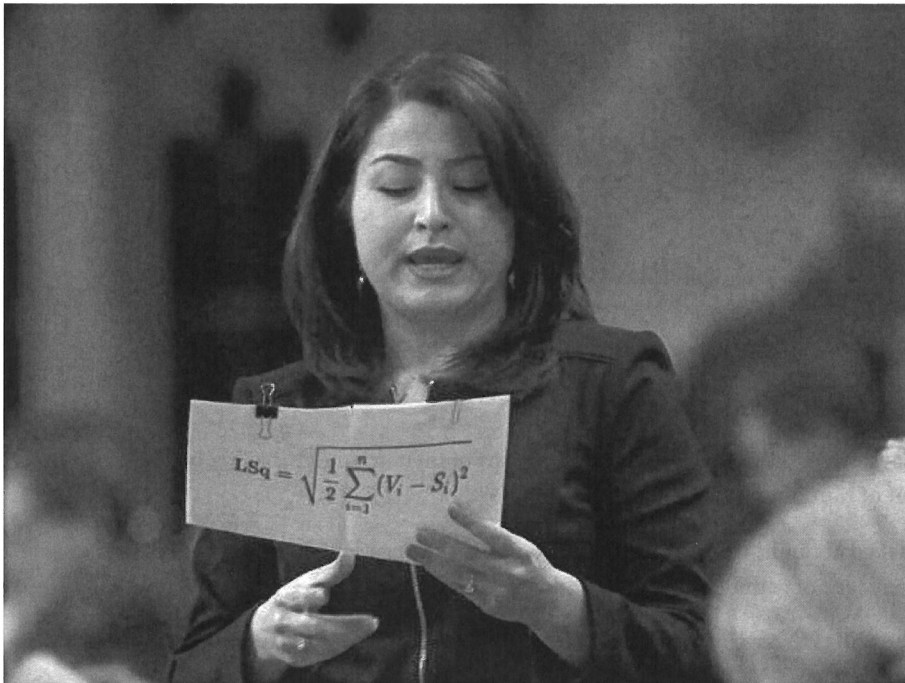 LSq = √(1/2 ∑_{i=1}^{n} (V_i − S_i)^2)